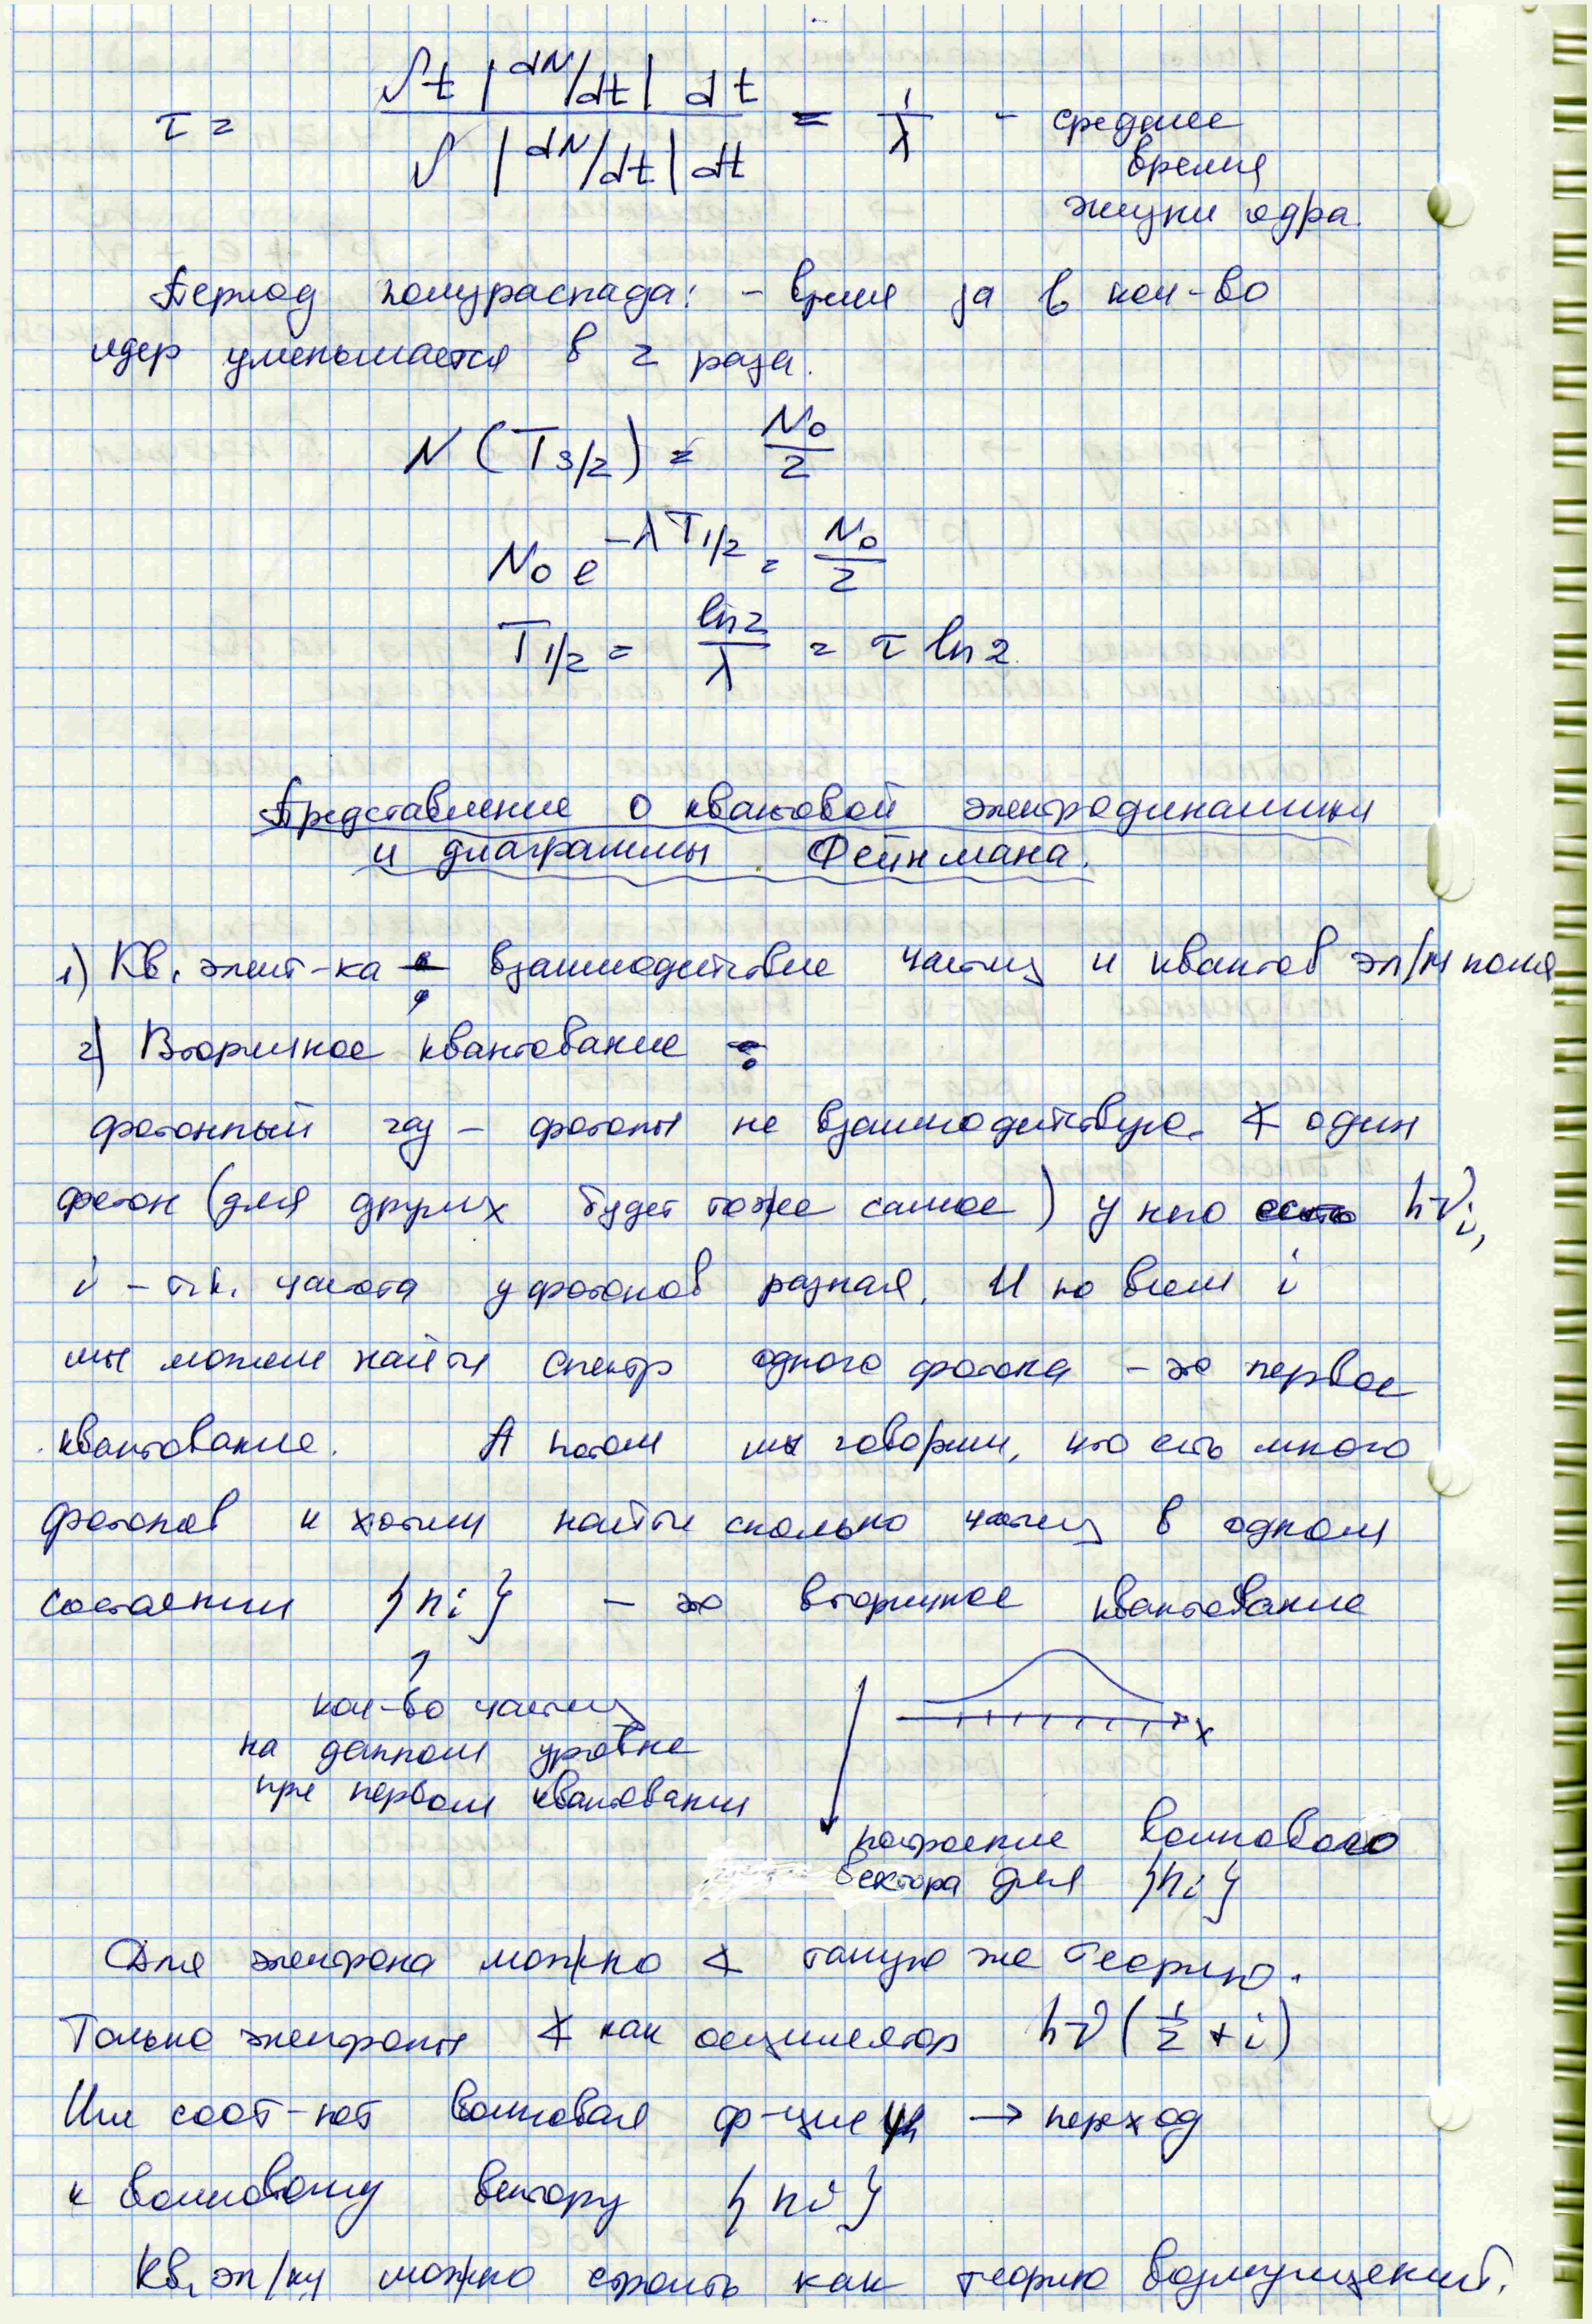 τ = ∫t |dN/dt| dt / ∫ |dN/dt| dt = 1/λ - среднее
время
жизни ядра.
Период полураспада: - время за в кол-во
ядер уменьшается в 2 раза.
N (T3/2) = N0/2
N0 e^{-λT1/2} = N0/2
T1/2 = ln2/λ = τ ln 2.
Представление о квантовой электродинамики
и диаграммы Фейнмана.
1) Кв. элект-ка взаимодействие частиц и квантов эл/м поля
2) Вторичное квантование :
фотонный газ - фотоны не взаимодействую. ∢ один
фотон (для других будет тоже самое) у него есть hνi,
i - т.к. частота у фотонов разная. И по всем i
мы можем найти спектр одного фотона - это первое
квантование. А потом мы говорим, что есть много
фотонов и хотим найти сколько частиц в одном
состоянии {ni} - это вторичное квантование
↑
кол-во частиц
на данном уровне
при первом квантовании
x
построение волнового
вектора для {ni}
Для электрона можно ∢ такую же теорию.
Только электроны ∢ как осциллятор hν(1/2 + i)
Им соот-ют волновая ф-ция ψ → переход
к волновому вектору {ni}
Кв. эл/ку можно строить как теорию возмущений.